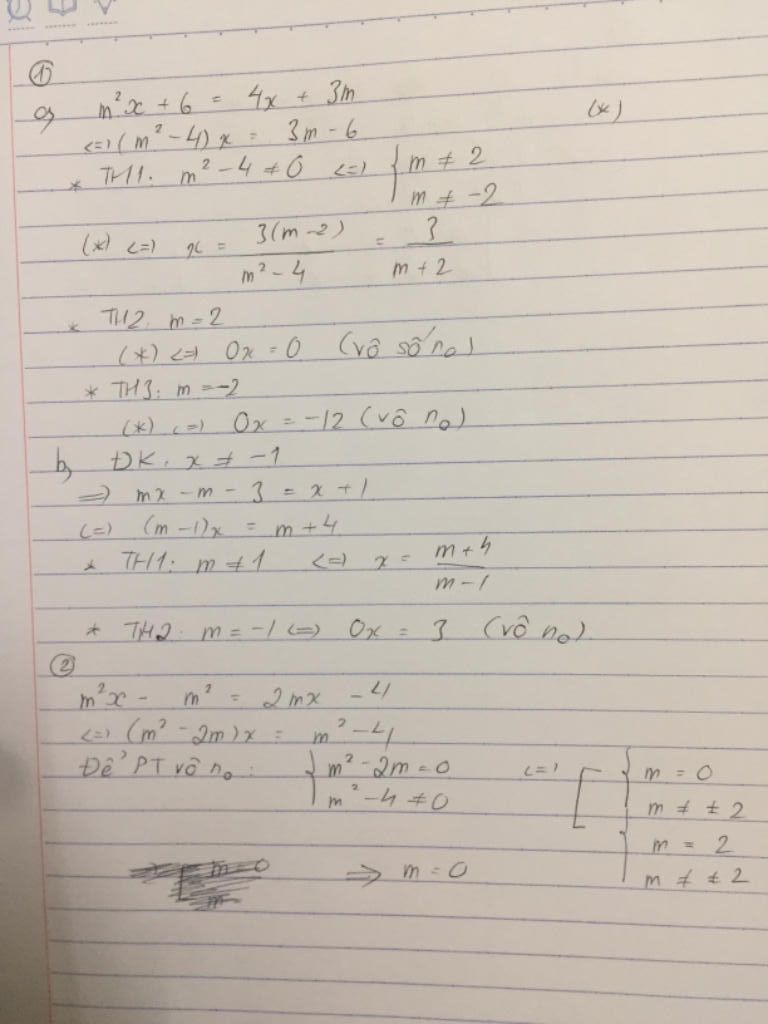 ①
a, m²x + 6 = 4x + 3m
<=> (m² - 4)x = 3m - 6 (*)
* TH1: m² - 4 ≠ 0 <=> { m ≠ 2
m ≠ -2
(*) <=> x = 3(m-2) / (m² - 4) = 3 / (m + 2)
* TH2: m = 2
(*) <=> 0x = 0 (vô số n₀)
* TH3: m = -2
(*) <=> 0x = -12 (vô n₀)
b, ĐK: x ≠ -1
=> mx - m - 3 = x + 1
<=> (m - 1)x = m + 4
* TH1: m ≠ 1 <=> x = (m + 4) / (m - 1)
* TH2: m = -1 <=> 0x = 3 (vô n₀)
②
m²x - m² = 2mx - 4
<=> (m² - 2m)x = m² - 4
Để PT vô n₀: { m² - 2m = 0 <=> [ { m = 0
m² - 4 ≠ 0 m ≠ ±2
{ m = 2
m ≠ ±2
=> m = 0